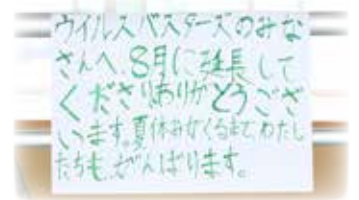 ウイルスバスターズのみな
さんへ。8月に延長して
くださりありがとうござ
います。夏休みなくるまでわたし
たちも、がんばります。